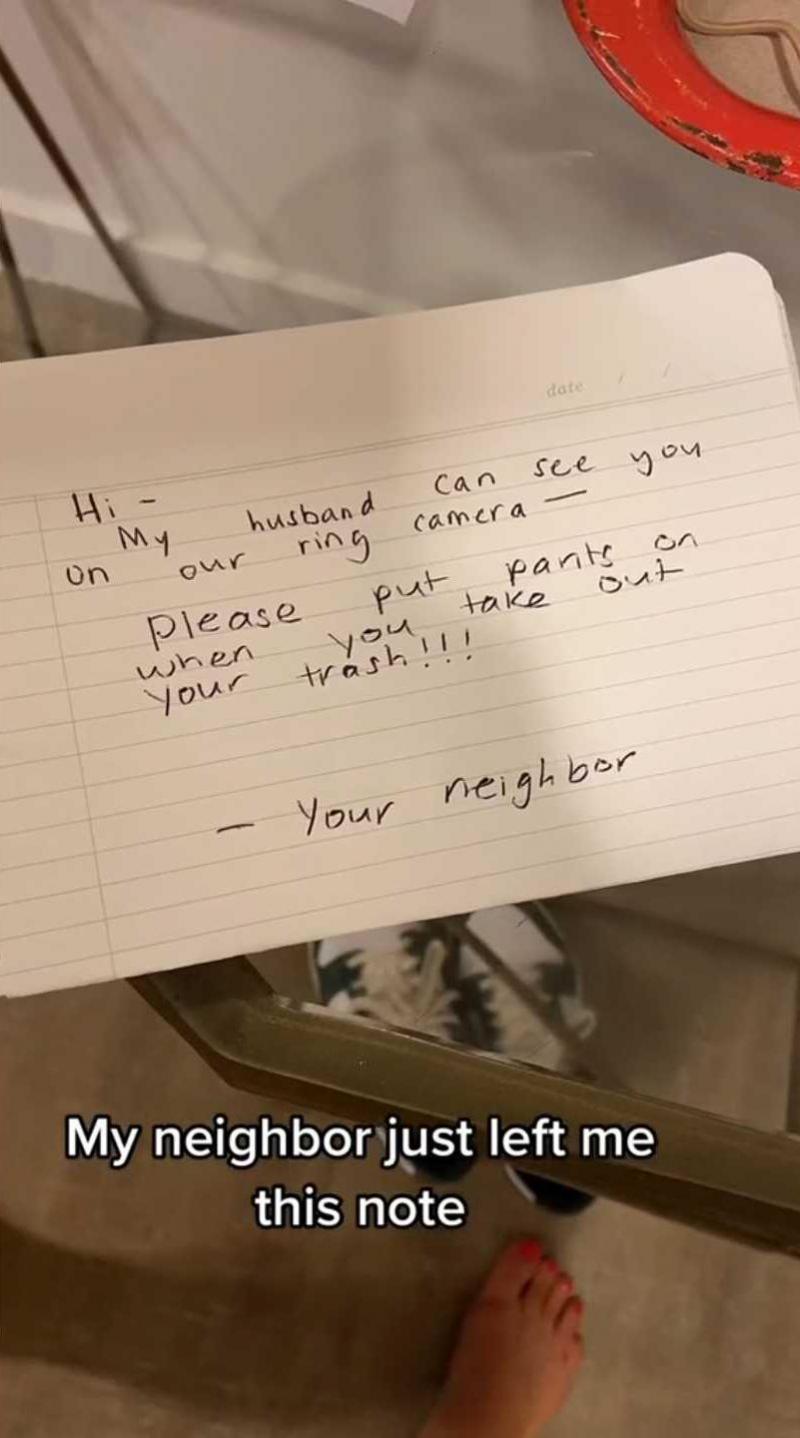 date / /
Hi -
My husband can see you
on our ring camera —
please put pants on
when you take out
your trash!!!
— Your neighbor
My neighbor just left me
this note